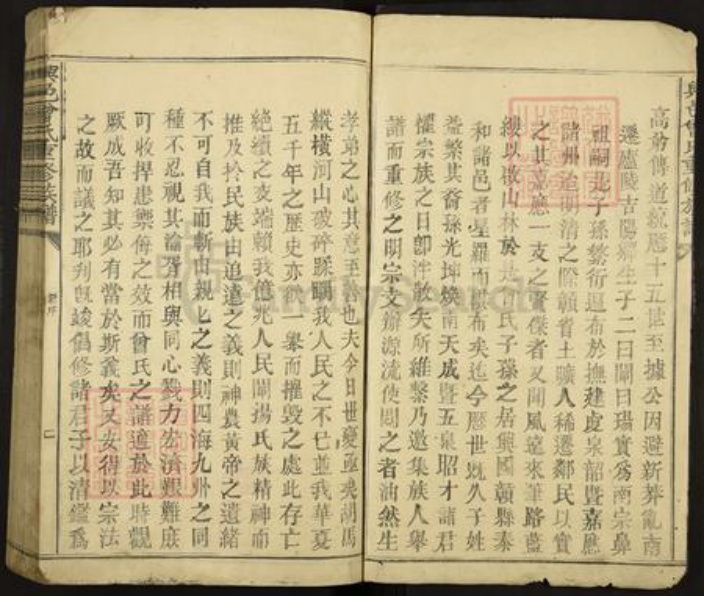 高弟傳道統歷十五世至據公因避新莽亂南
遷廬陵吉陽鄉生子二曰闡曰瑒實爲南宗鼻
祖嗣是子孫繁衍遍布於撫建虔泉韶曁嘉應
諸州迨明清之際贛省土曠人稀遷鄰民以實
之其嘉應一支之賢傑者又聞風遠來篳路藍
縷以啟山林於 曾氏子孫之居興國贛縣泰
和諸邑者星羅而棋布矣迄今歷世既久子姓
益繁其裔孫光 煥南天成曁五泉昭才諸君
懼宗族之日卽 放失所維繫乃邀集族人舉
譜而重修之明宗支辨源流使閱之者油然生
孝弟之心其意至善也夫今日世變亟矣胡馬
縱橫河山破碎蹂躪我人民之不已並我華夏
五千年之歷史亦欲一舉而摧毀之處此存亡
絕續之交端賴我億兆人民闡揚氏族精神而
推及於民族由追遠之義則神農黃帝之遺緒
不可自我而斬由親上之義則四海九州之同
種不忍視其淪胥相與同心戮力宏濟艱難庶
可收捍患禦侮之效而曾氏之譜適於此時觀
厥成吾知其必有當於斯義矣又安得以宗法
之故而議之耶刋旣竣倡修諸君子以清鑑爲